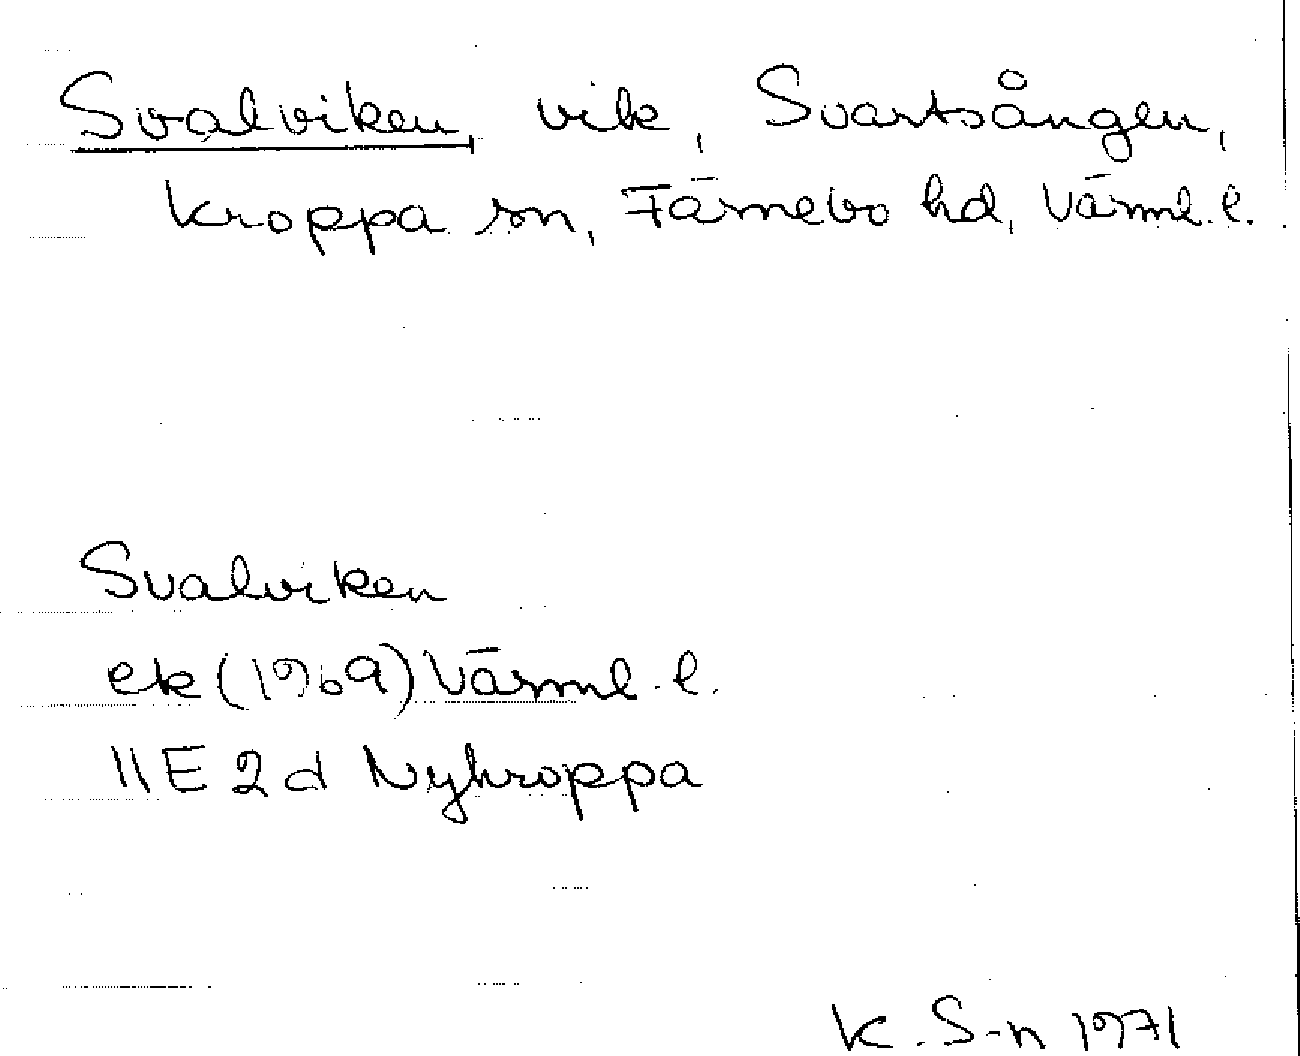 Svalviken, vik, Svartsången,
Kroppa sn, Färnebo hd, Värml. l.
Svalviken
ek (1969) Värml. l.
11E 2d Nykroppa
K. S-n 1971